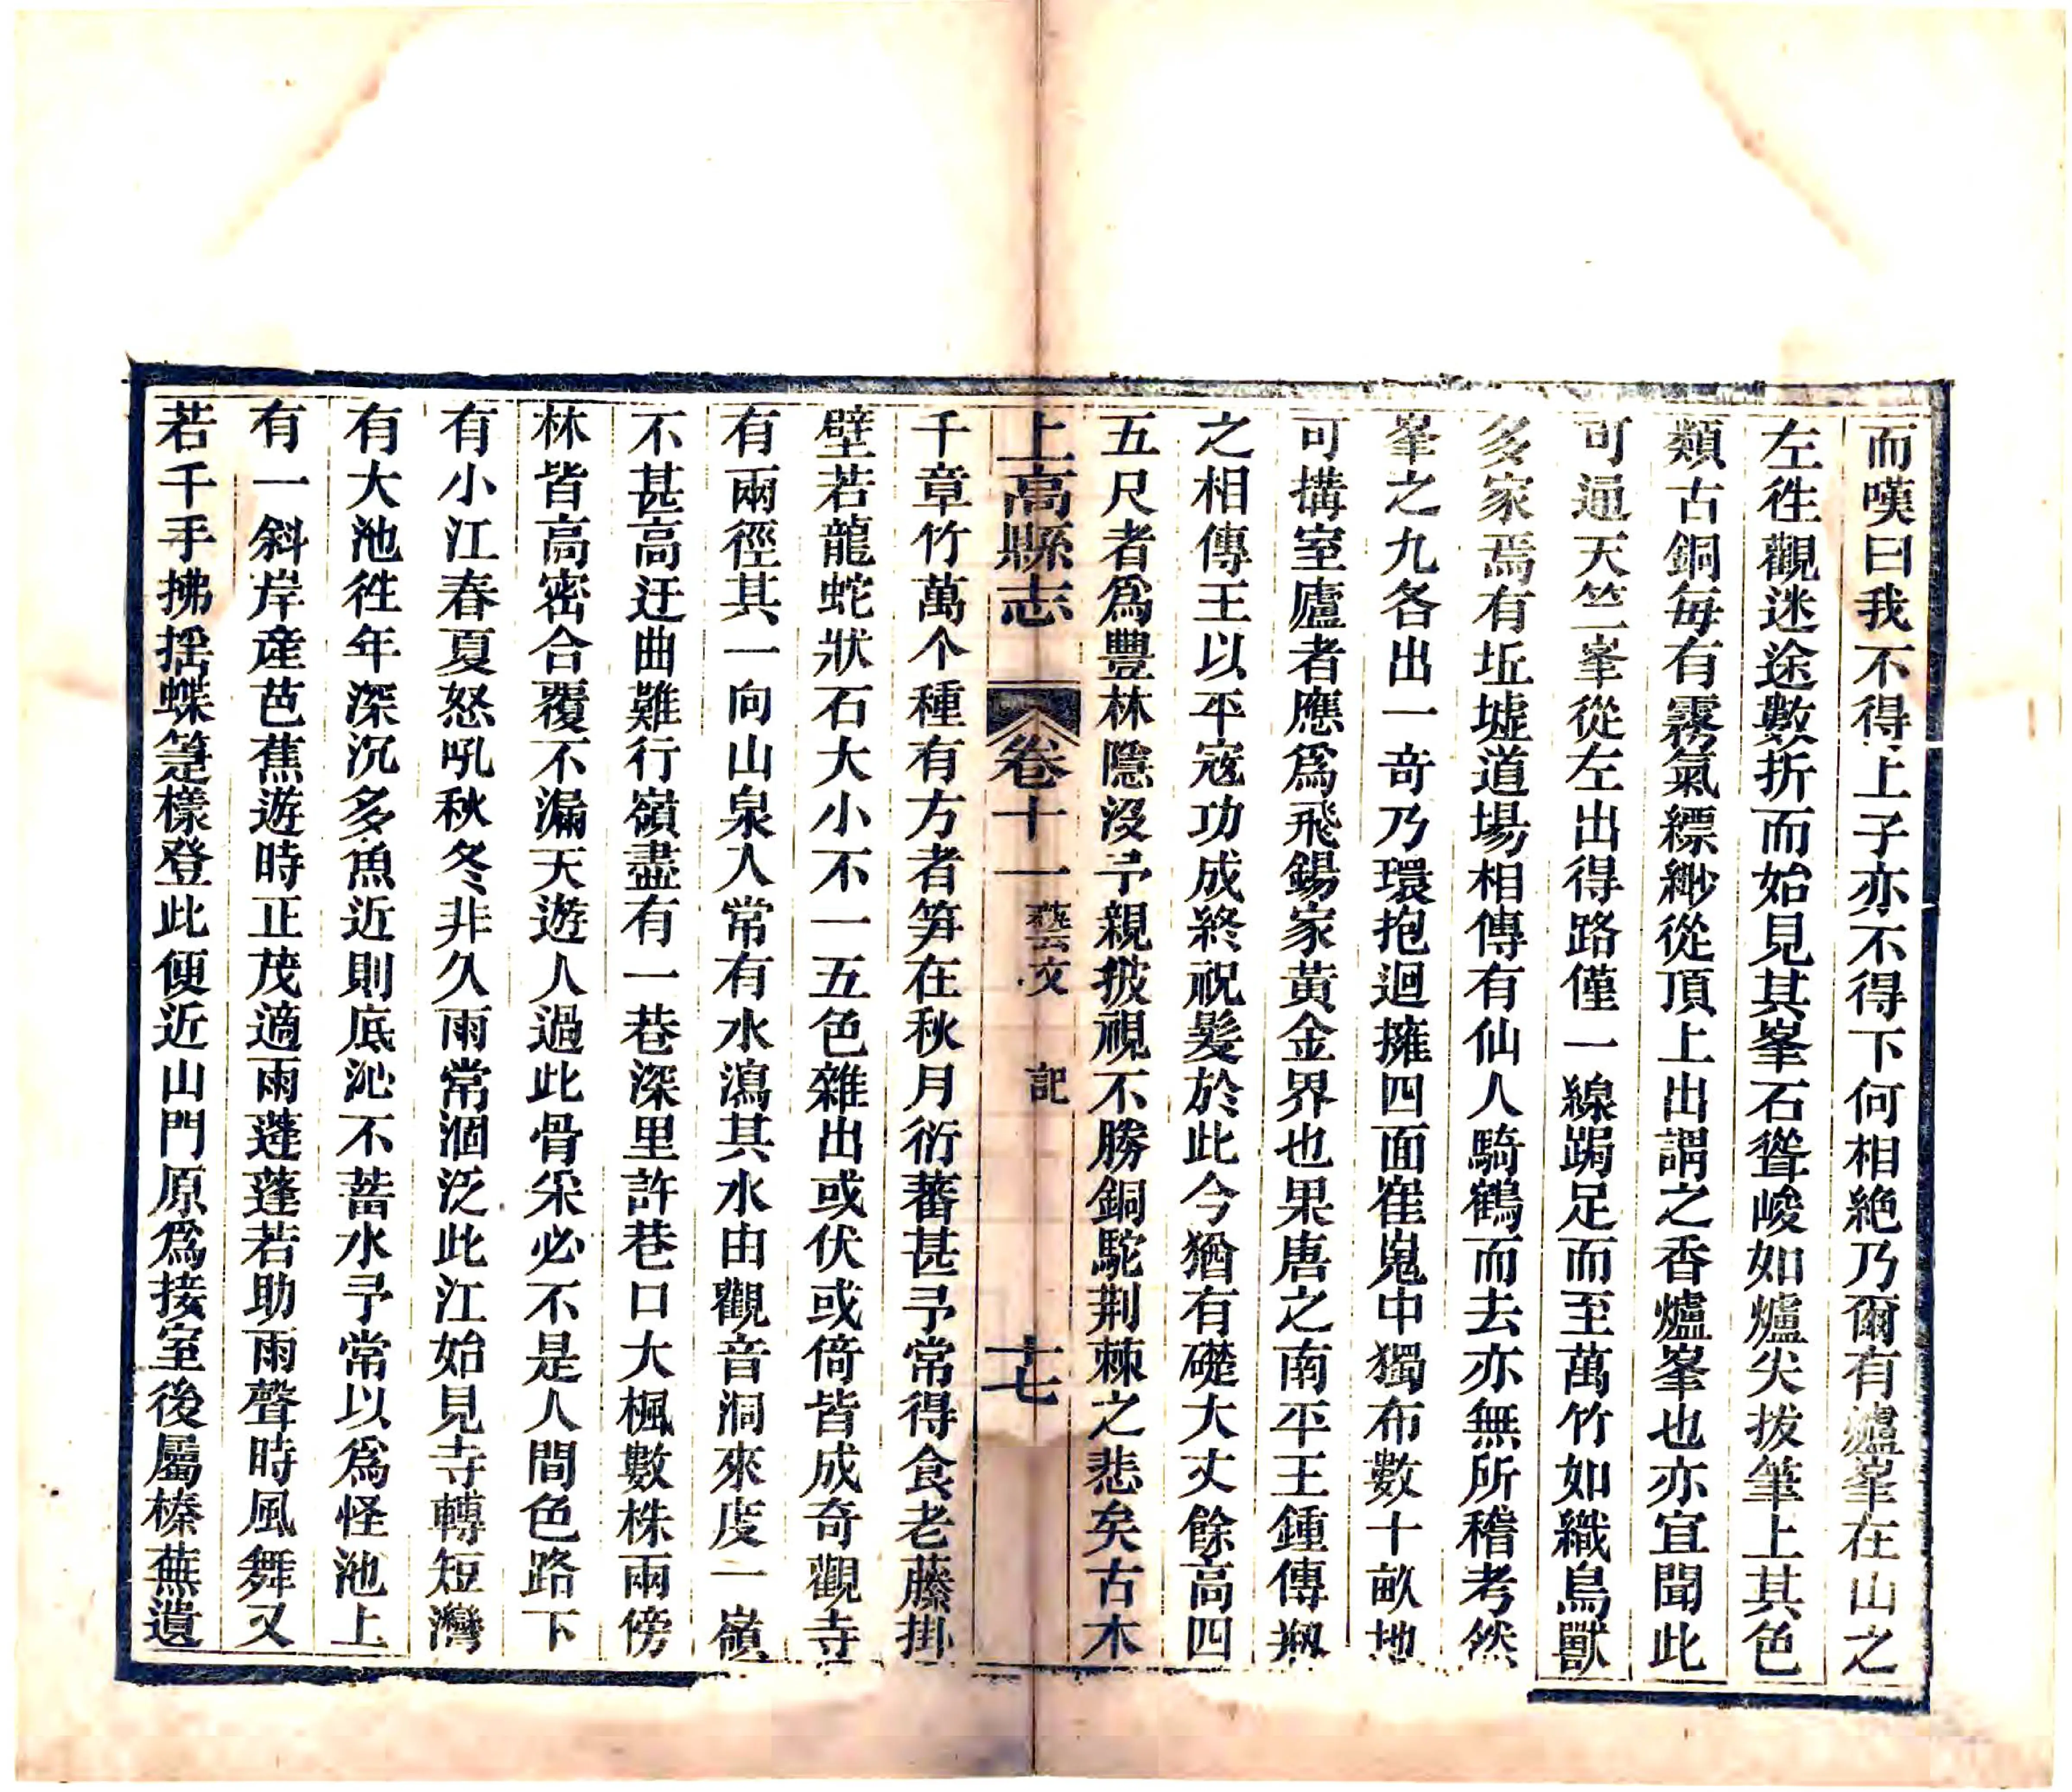 而嘆曰我不得上子亦不得下何相絶乃爾有爐峯在山之
左徃觀迷途數折而始見其峯石聳峻如爐尖拔筆上其色
類古銅每有霧氣縹緲從頂上出謂之香爐峯也亦宜聞此
可通天竺峯從左出得路僅一線跼足而至萬竹如織鳥獸
多家焉有坵墟道場相傳有仙人騎鶴而去亦無所稽考然
峯之九各出一奇乃環抱迴擁四面崔嵬中獨布數十畝地
可搆室廬者應爲飛錫家黃金界也果唐之南平王鍾傳剏
之相傳王以平寇功成終祝髮於此今猶有礎大丈餘高四
五尺者爲豐林隱沒予親披視不勝銅駝荆棘之悲矣古木
上高縣志 卷十一 藝文 記 十七
千章竹萬个種有方者笋在秋月衍蕃甚予常得食老藤掛
壁若龍蛇狀石大小不一五色雜出或伏或倚皆成奇觀寺
有兩徑其一向山泉入常有水瀉其水由觀音洞來度一嶺
不甚高迂曲難行嶺盡有一巷深里許巷口大楓數株兩傍
林皆高密合覆不漏天遊人過此骨采必不是人間色路下
有小江春夏怒吼秋冬非久雨常涸泛此江始見寺轉短灣
有大池徃年深沉多魚近則底沁不蓄水予常以爲怪池上
有一斜岸產芭蕉遊時正茂適雨蓬蓬若助雨聲時風舞又
若千手拂揺蝶筵樣登此便近山門原爲接室後屬榛蕪遺